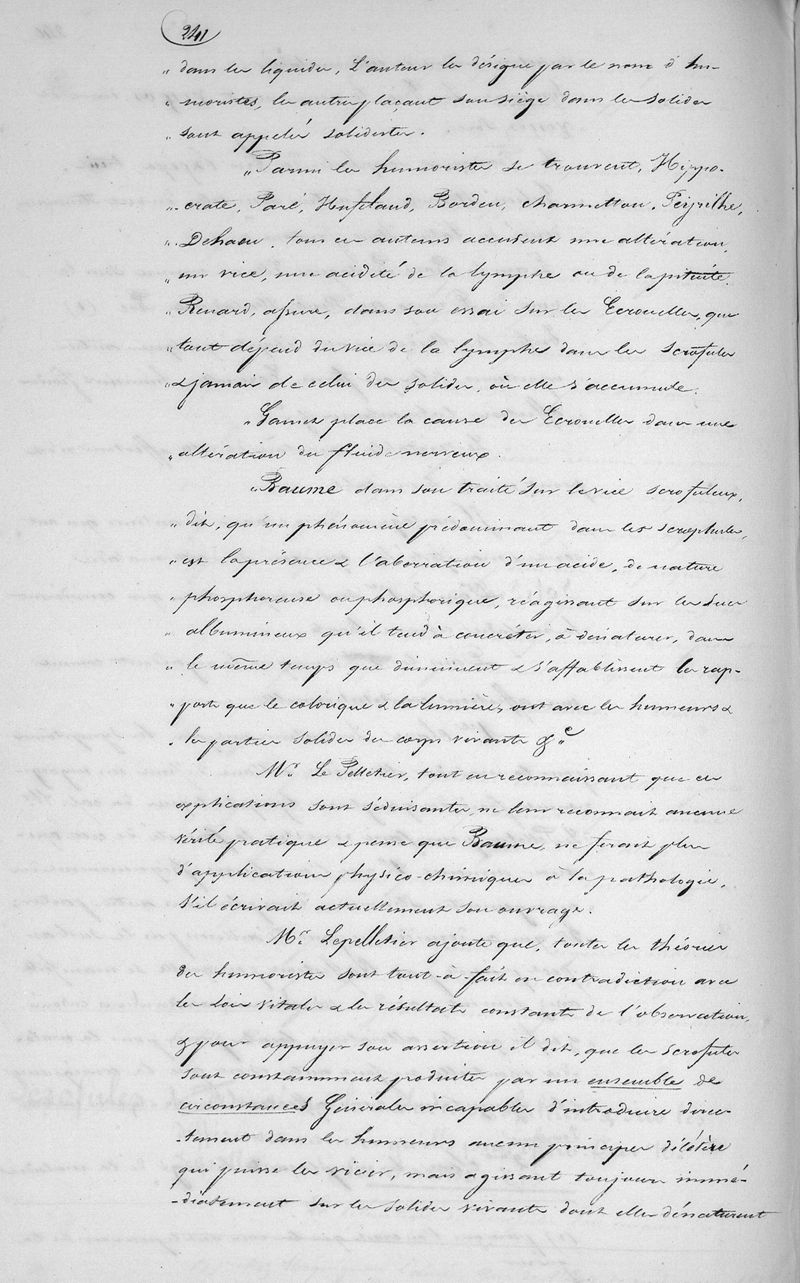 241
„ dans les liquides, L'auteur les désigne par le nom d'hu-
„ moristes, les autres plaçant son siège dans les solides
„ sont appelés solidistes.
„ Parmi les humoristes se trouvent, Hippo-
„ crate, Paré, Hufeland, Bordeu, charmetton, Peyrilhe,
„ Dehaen, tous ces auteurs accusent une altération,
„ un vice, une acidité de la lymphe ou de la pituite.
„ Renard, assure, dans son essai sur les Ecrouelles, que
„ tout dépend du vice de la lymphe dans les scrofules
„ & jamais de celui des solides, où elle s'accumule.
„ Gamet place la cause des Ecrouelles dans une
„ altération du fluide nerveux.
„ Baume dans son traité sur le vice scrofuleux,
„ dit, qu'un phénomène prédominant dans les scrophules,
„ est la présence & l'aborration d'un acide, de nature
„ phosphoreuse ou phosphorique, réagissant sur les sucs
„ albumineux qu'il tend à concréter, à dénaturer, dans
„ le même temps que diminuent & s'affablissent les rap-
„ ports que le calorique & la lumière, ont avec les humeurs &
„ les parties solides des corps vivants &c „
Mr Le Pelletier, tout en reconnaissant que ces
explications sont séduisantes, ne leur reconnait aucune
vérité pratique & pense que Baume, ne ferait plus
d'applications physico-chimiques à la pathologie,
s'il écrivait actuellement son ouvrage.
Mr Lepelletier ajoute que, toutes les théories
des humoristes sont tout-à-fait en contradiction avec
les lois vitales & les résultats constants de l'observation,
& pour appuyer son assertion il dit, que les scrofules
sont constamment produites par un ensemble de
circonstances Générales incapables d'introduire direc-
-tement dans les humeurs aucun principes délétère
qui puisse les vicier, mais agissant toujours immé-
-diatement sur les solides vivants dont elles dénaturent